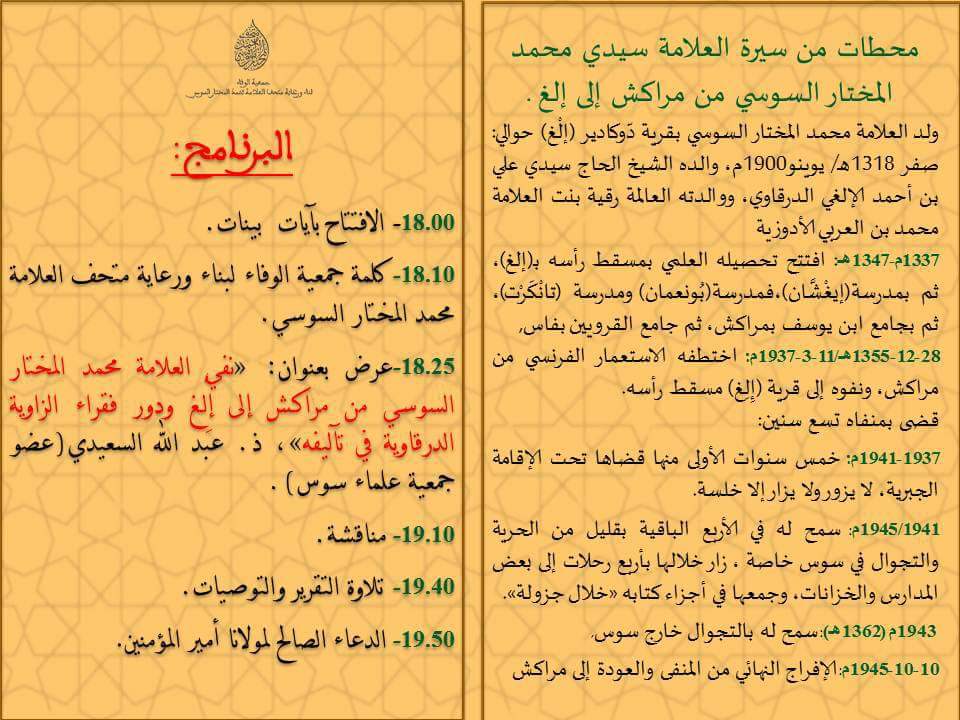 محطات من سيرة العلامة سيدي محمد
المختار السوسي من مراكش إلى إلغ .
ولد العلامة محمد المختار السوسي بقرية دّوكادير (إلْغ) حوالي:
صفر 1318هـ/ يوينو1900م، والده الشيخ الحاج سيدي علي
بن أحمد الإلغي الدرقاوي، ووالدته العالمة رقية بنت العلامة
محمد بن العربي الأدوزية
1337م-1347هـ: افتتح تحصيله العلمي بمسقط رأسه بـ(إلغ)،
ثم بمدرسة(إيغْشَّان)،فمدرسة(بُونعمان) ومدرسة (تانْكَرْت)،
ثم بجامع ابن يوسف بمراكش، ثم جامع القرويين بفاس,
28-12-1355هـ/11-3-1937م: اختطفه الاستعمار الفرنسي من
مراكش، ونفوه إلى قرية (إلغ) مسقط رأسه.
قضى بمنفاه تسع سنين:
1937-1941م: خمس سنوات الأولى منها قضاها تحت الإقامة
الجبرية، لا يزور ولا يزار إلا خلسة.
1945/1941م: سمح له في الأربع الباقية بقليل من الحرية
والتجوال في سوس خاصة ، زار خلالها بأربع رحلات إلى بعض
المدارس والخزانات، وجمعها في أجزاء كتابه «خلال جزولة».
1943م (1362هـ):سمح له بالتجوال خارج سوس,
10-10-1945م:الإفراج النهائي من المنفى والعودة إلى مراكش
جمعية الوفاء
لبناء ورعاية متحف العلامة محمد المختار السوسي
البرنامج:
18.00- الافتتاح بآيات بينات .
18.10-كلمة جمعية الوفاء لبناء ورعاية متحف العلامة
محمد المختار السوسي .
18.25-عرض بعنوان: «نفي العلامة محمد المختار
السوسي من مراكش إلى إلغ ودور فقراء الزاوية
الدرقاوية في تآليفه» ، ذ. عبد الله السعيدي(عضو
جمعية علماء سوس) .
19.10- مناقشة .
19.40- تلاوة التقرير والتوصيات .
19.50- الدعاء الصالح لمولانا أمير المؤمنين.